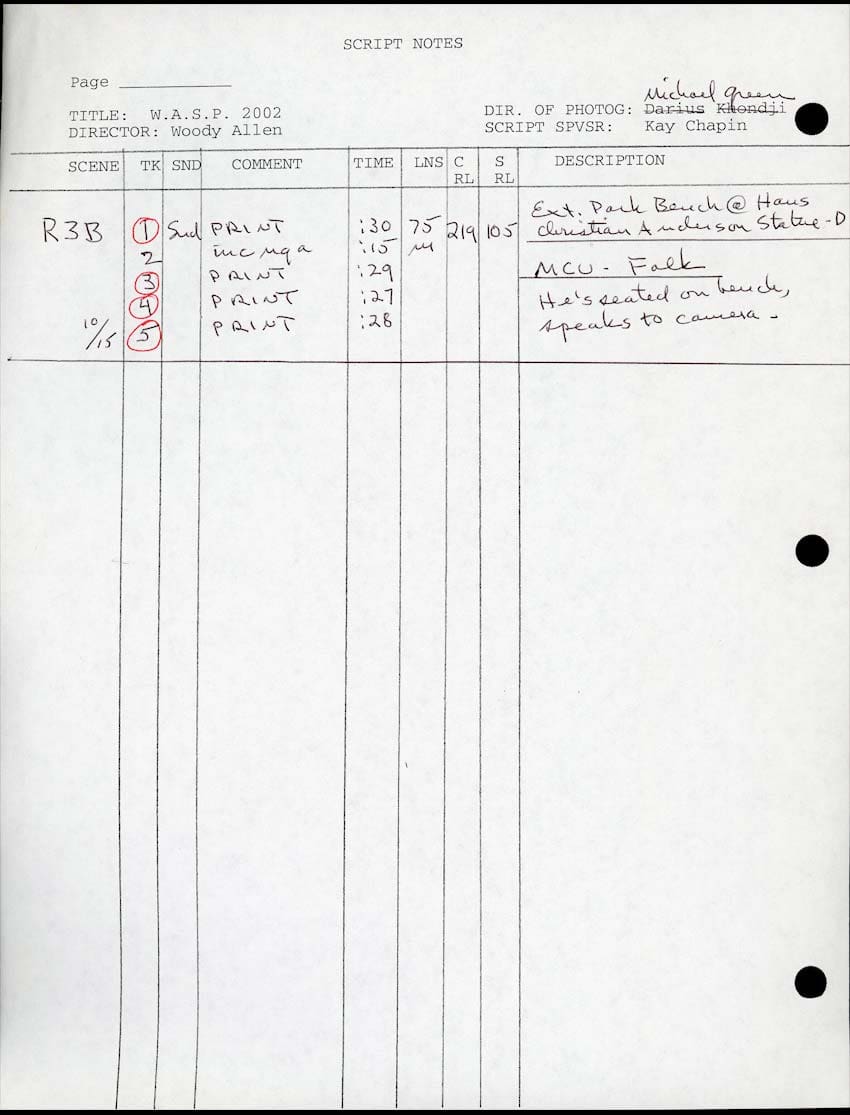 SCRIPT NOTES
Page
Michael Green
TITLE: W.A.S.P. 2002 DIR. OF PHOTOG: Darius Khondji
DIRECTOR: Woody Allen SCRIPT SPVSR: Kay Chapin
SCENE TK SND COMMENT TIME LNS C RL S RL DESCRIPTION
Ext. Park Bench @ Hans
R3B 1 Snd PRINT :30 75 219 105 Christian Anderson Statue - D
2 inc nga :15 m
3 PRINT :29 MCU - Falk
4 PRINT :27 He's seated on bench,
10/15 5 PRINT :28 speaks to camera -